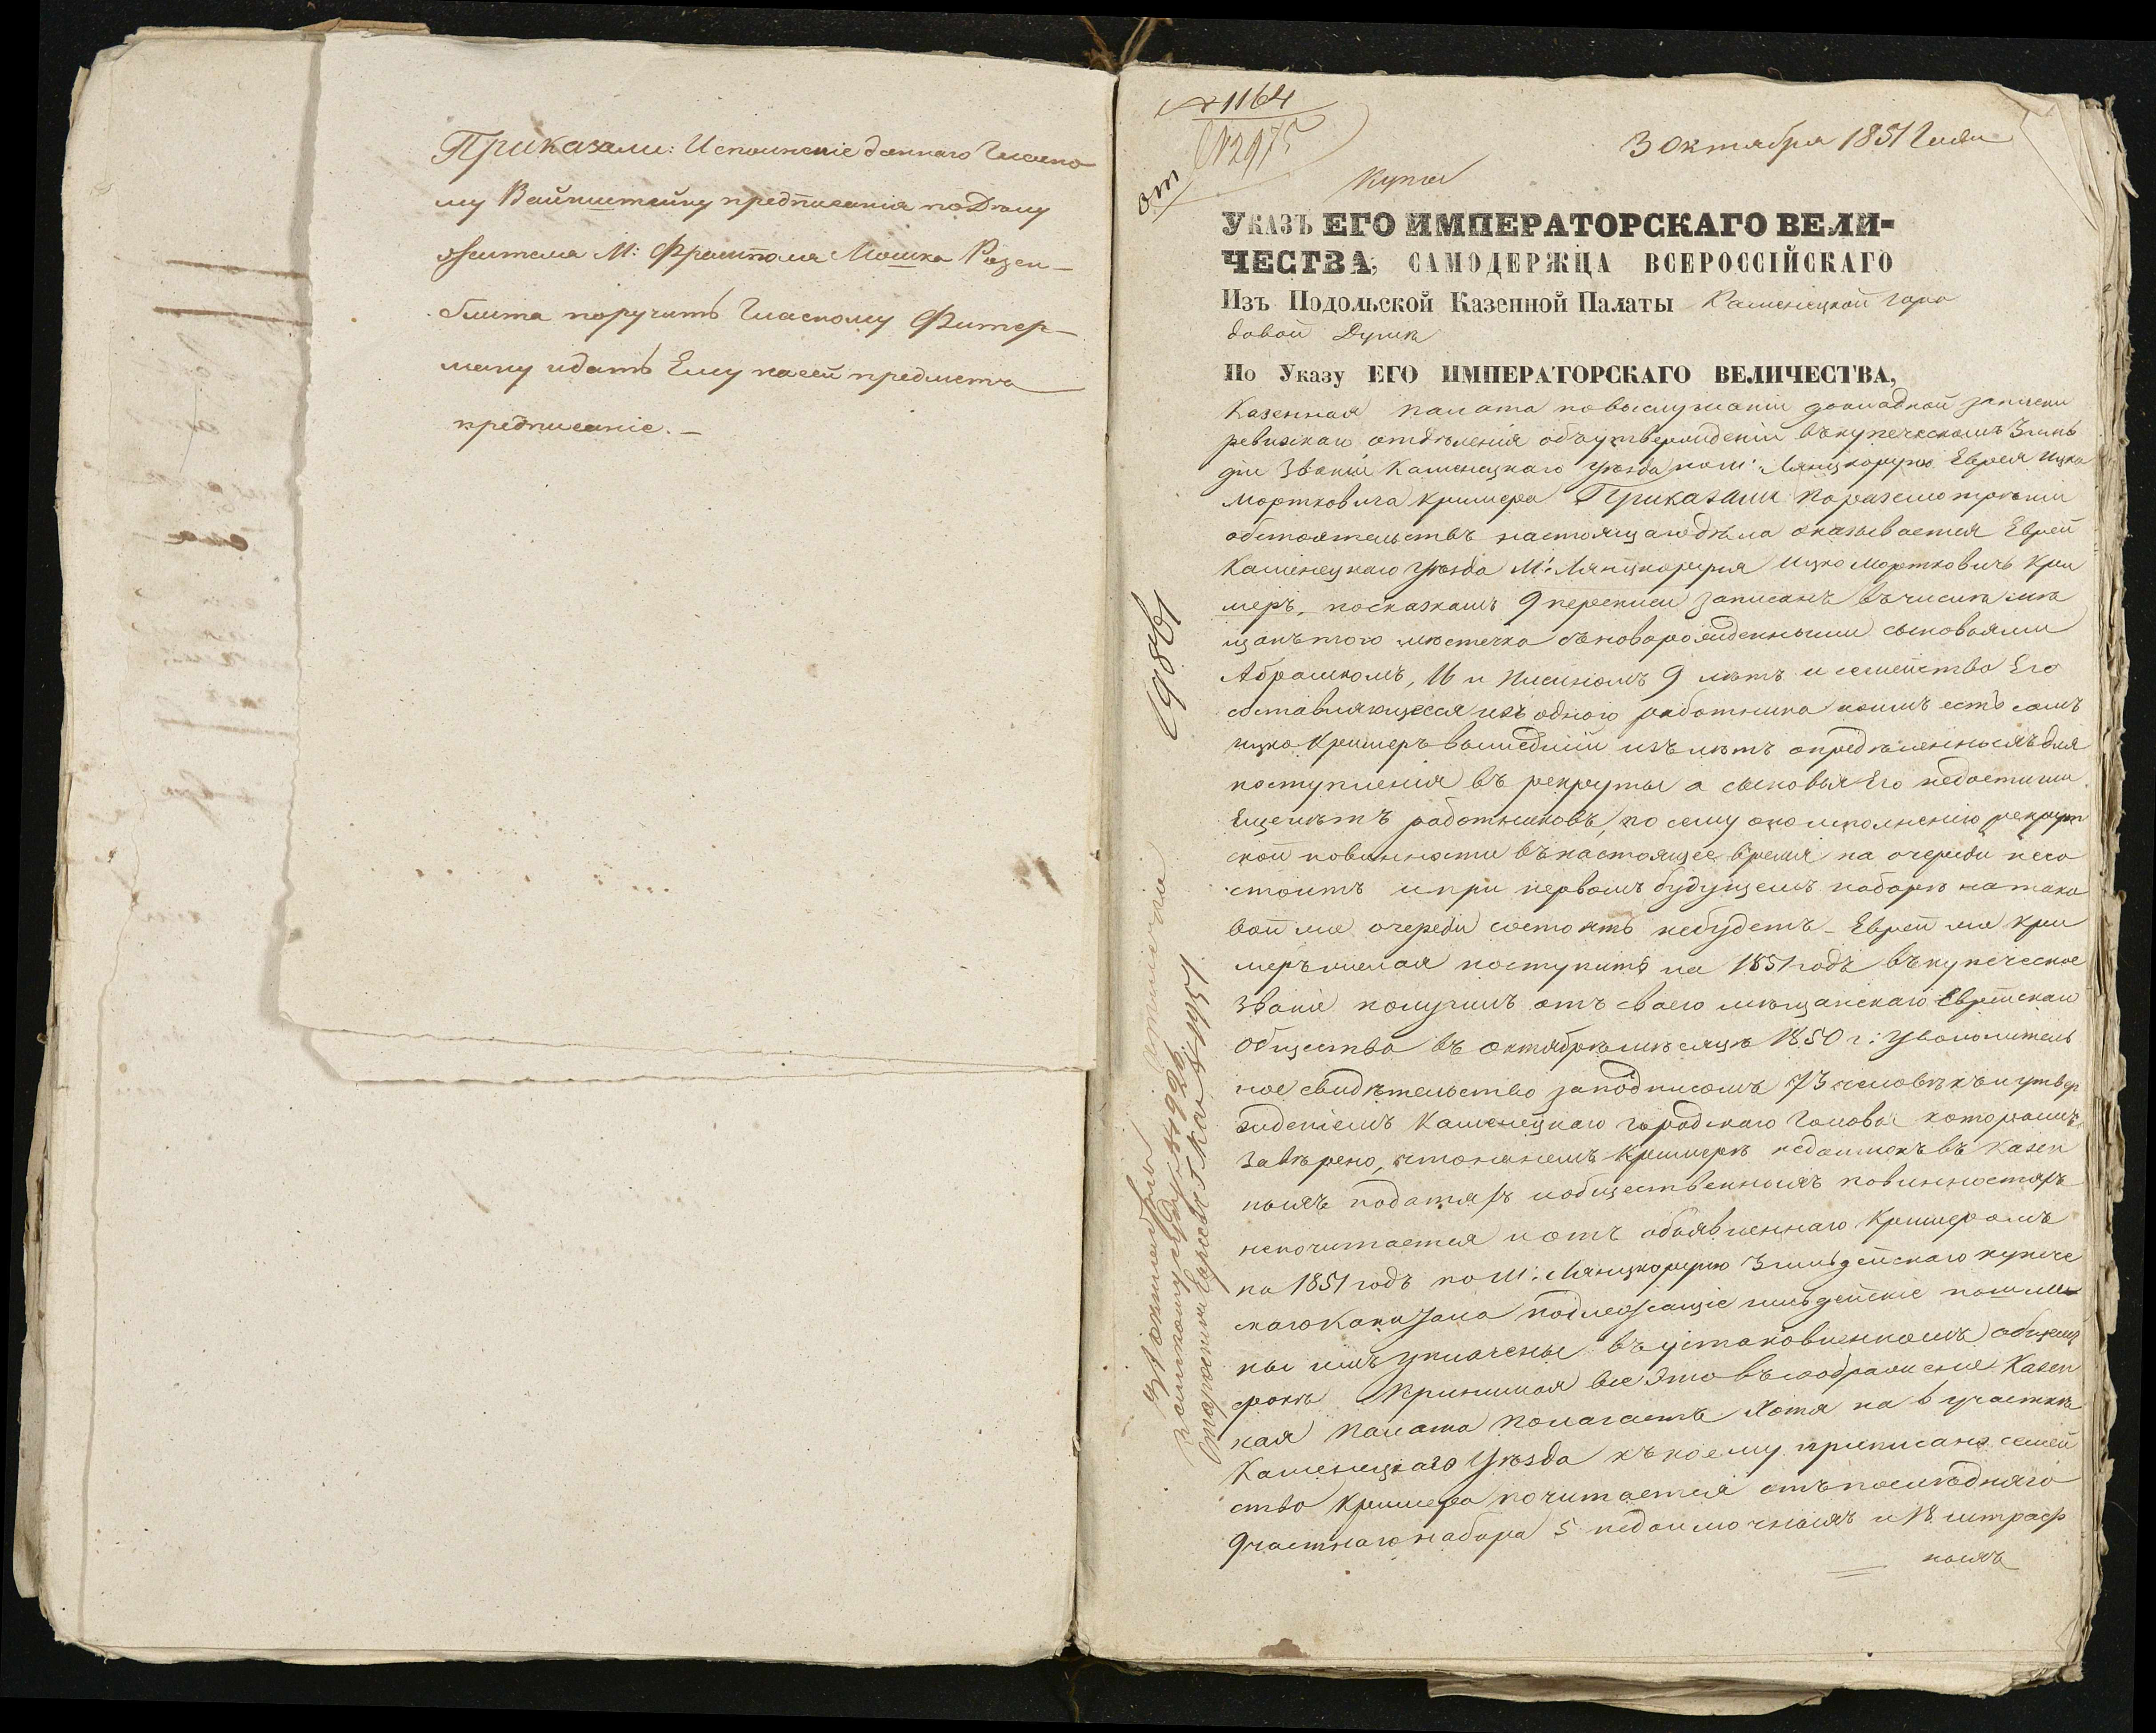 Приказали: Исполненіе даннаго Гласно
му Вайнштейну предписанія по Дѣлу
жителя М: Фрамполя Мошка Розен-
блита поручить Гласному Фитер-
ману и дать Ему на сей предметъ
предписаніе.-
№ 1164
№ 2975
от
3 Октября 1851 Года
Купцы
Указъ ЕГО ИМПЕРАТОРСКАГО ВЕЛИ-
ЧЕСТВА, САМОДЕРЖЦА ВСЕРОССІЙСКАГО
Изъ Подольской Казенной Палаты Каменецкой горо
довой Думѣ
По Указу ЕГО ИМПЕРАТОРСКАГО ВЕЛИЧЕСТВА,
Казенная палата по выслушаніи докладной записки
ревизскаго отдѣленія объ утвержденіи въ купеческомъ 3 гиль
діи званіи Каменецкаго уѣзда по м: Лянцкоруню Еврея Ицка
Мортковича Кримера Приказали По разсмотрѣніи
обстоятельствъ настоящаго дѣла оказывается Еврей
Каменецкаго уѣзда М: Лянцкоруня Ицко Мортковичъ Кри
меръ, по сказкамъ 9 переписи записанъ въ числѣ мѣ
щанъ того мѣстечка съ новорожденными сыновьями
Абрамкомъ, 16 и 9 лѣтъ и семейство Его
составляющееся изъ одного работника коимъ есть самъ
Ицко Кримеръ вышедшій изъ лѣтъ опредѣленныхъ для
поступленія въ рекруты а сыновья Его недостигли
Еще лѣтъ работниковъ, по сему оно исполненію рекрут
ской повинности въ настоящее время на очереди не со
стоитъ и при первомъ будущемъ наборѣ на тако
вой же очереди состоять небудетъ - Еврей же Кри
меръ желая поступить на 1851 годъ въ купеческое
званіе получилъ отъ своего мѣщанскаго Еврейскаго
Общества въ Октябрѣ мѣсяцѣ 1850 г: увольнитель
ное свидѣтельство за подписомъ 73 человѣкъ и утвер
жденіемъ Каменецкаго городскаго Головы которымъ
завѣрено, что на немъ Кримерѣ недоимокъ въ казен
ныхъ податяхъ и общественныхъ повинностяхъ
непочитается и отъ объявленнаго Кримеромъ
на 1851 годъ по М: Лянцкоруню 3 гильдейскаго купече
скаго Капитала подлежащіе гильдейскіе пошли
ны имъ уплачены въ установленномъ общемъ
срокѣ Принимая все Это въ соображеніе Казен
ная палата полагаетъ Хотя на 6 участкѣ
Каменецкаго Уѣзда къ коему приписано семей
ство Кримера почитается отъ послѣдняго
9 частнаго набора 5 недоимочныхъ и 18 штраф
ныхъ